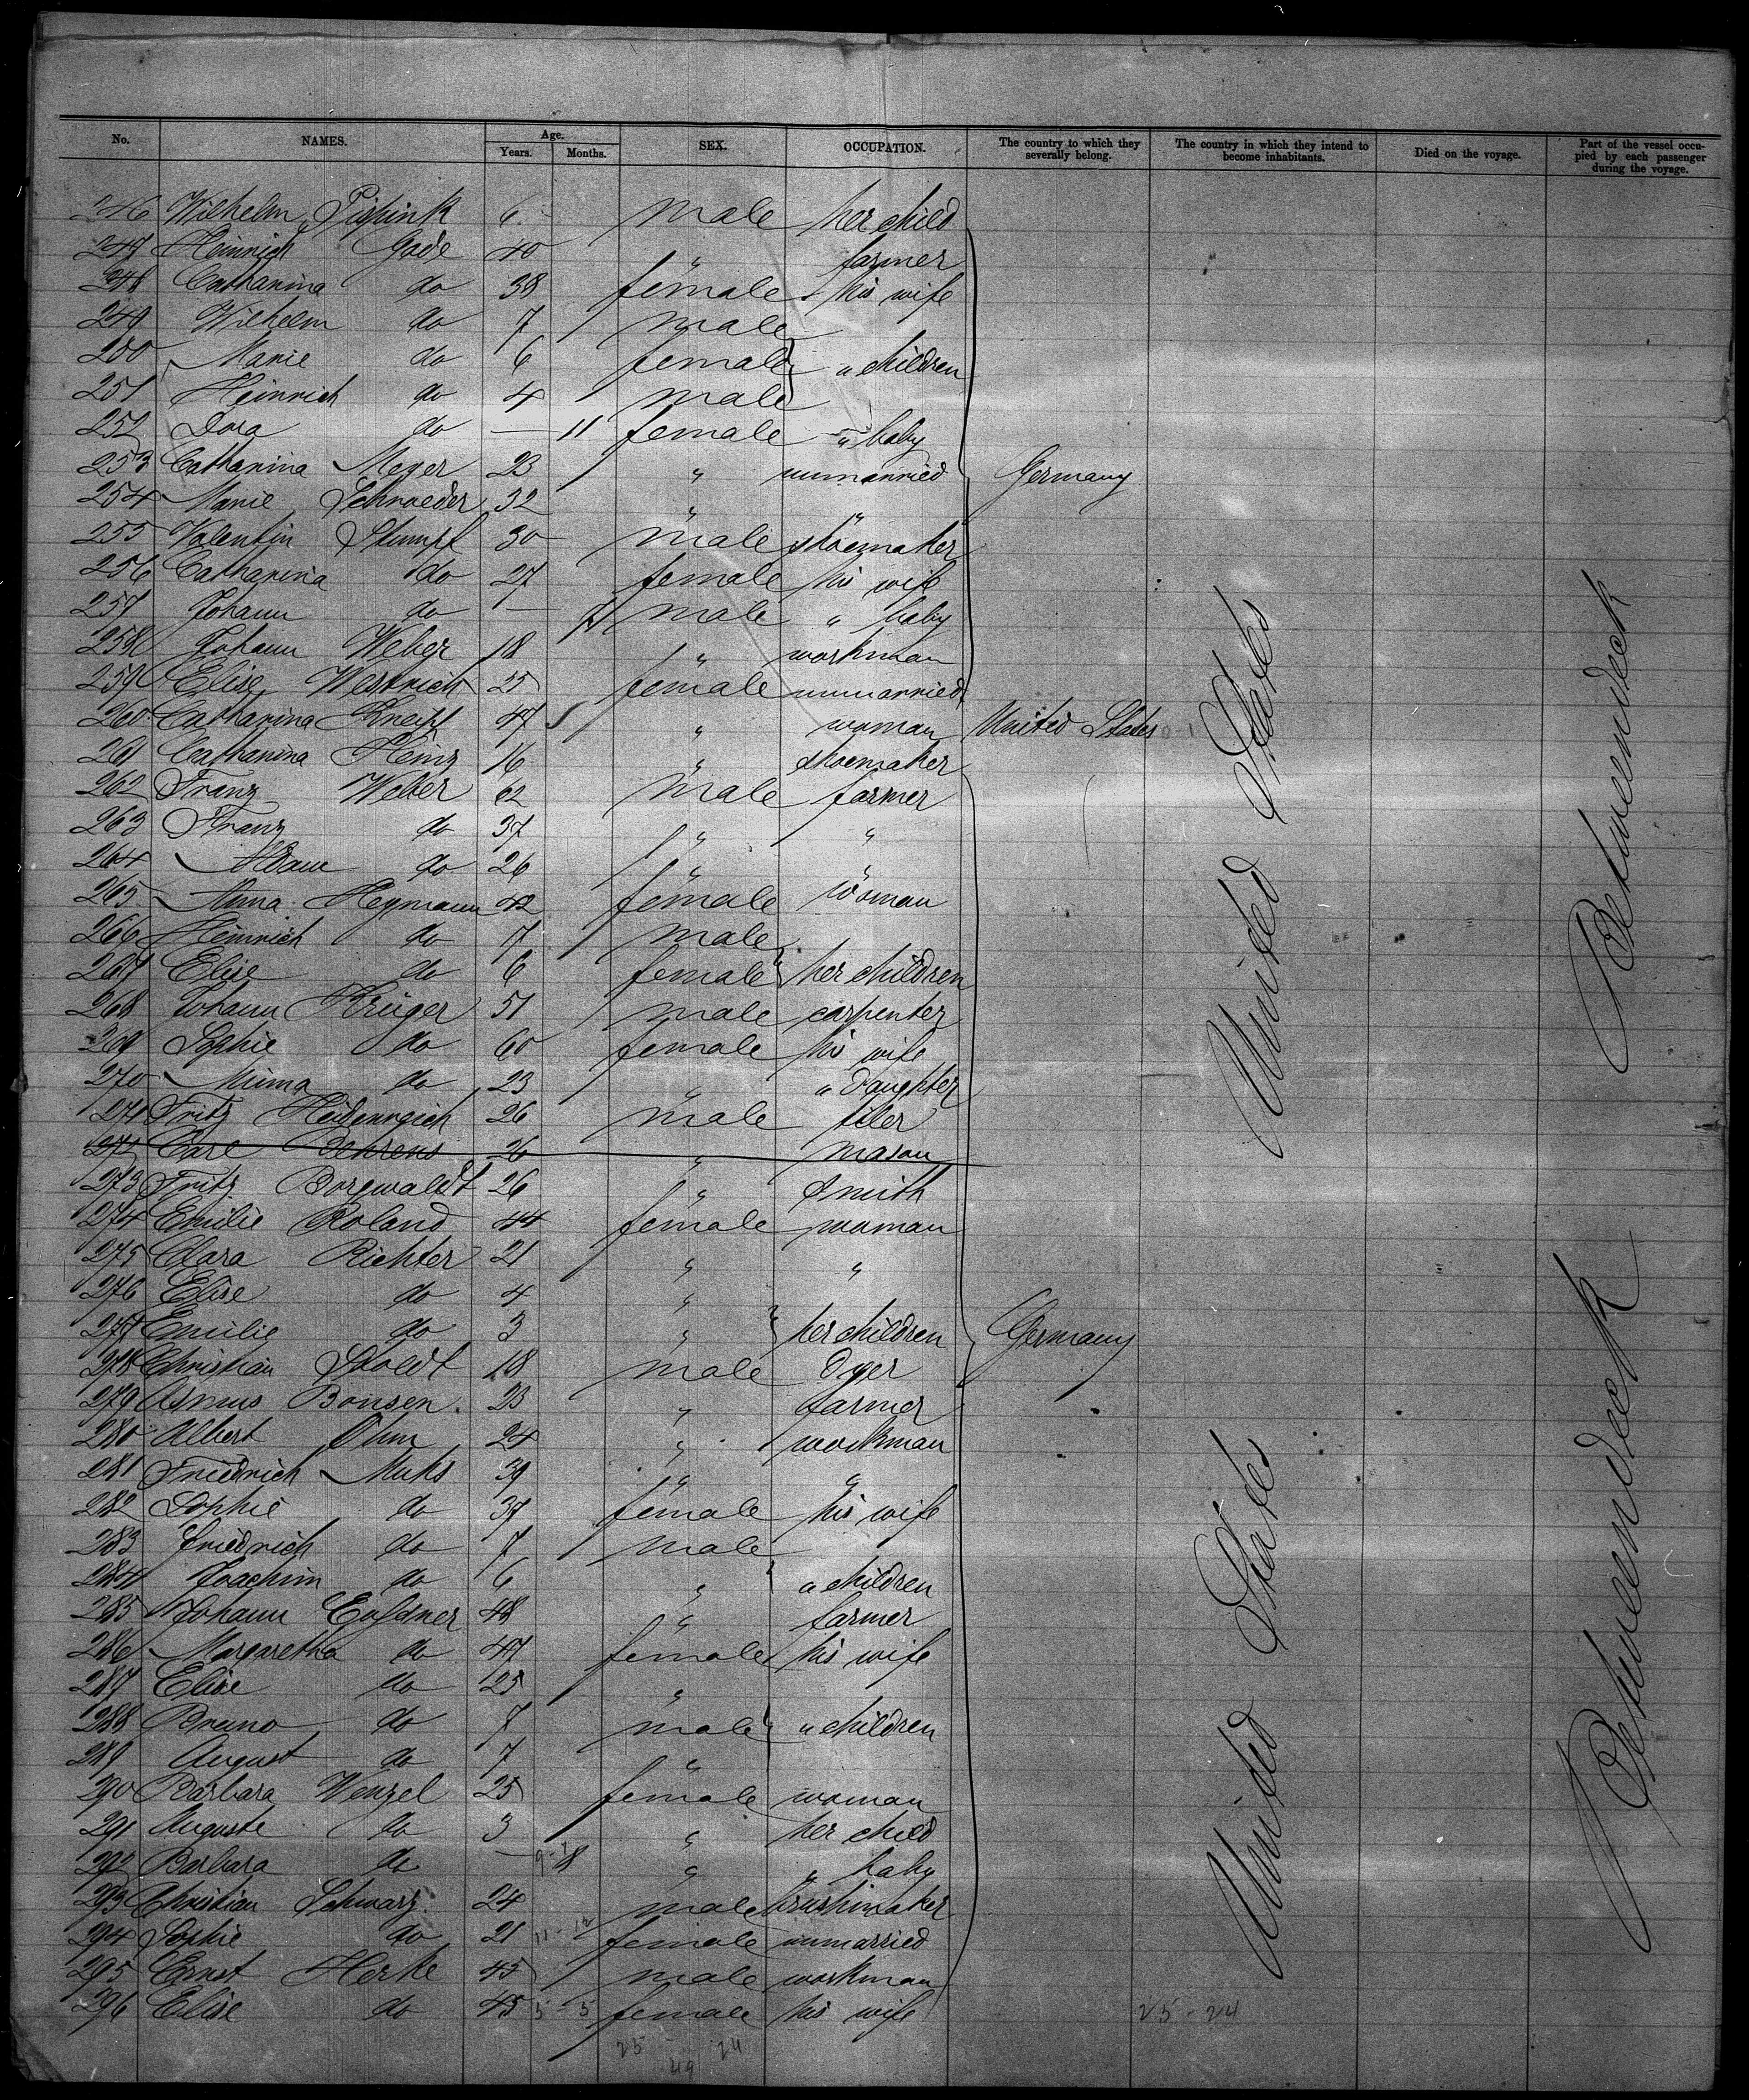 No. NAMES. Age. Years. Months. SEX. OCCUPATION. The country to which they severally belong. The country in which they intend to become inhabitants. Died on the voyage. Part of the vessel occupied by each passenger during the voyage.
246 Wilhelm 6 male her child
247 Heinrich Gade 40 " farmer
248 Catharina do 38 female his wife
249 Wilhelm do 7 male
250 Marie do 6 female " children
251 Heinrich do 4 male
252 Dora do — 11 female " baby
253 Catharina Meyer 23 " unmarried Germany
254 Marie Schroeder 32 " "
255 Valentin Stumpf 30 male shoemaker
256 Catharina do 27 female his wife
257 Johann do — male " baby
258 Johann Weber 18 " workman
259 Elise Westrich 25 female unmarried
260 Catharina Kneipf 47 " woman United States
261 Catharina Heinz 16 " shoemaker
262 Franz Weber 62 male farmer
263 Franz do 37 " "
264 Adam do 26 " "
265 Anna Heymann 42 female woman
266 Heinrich do 7 male
267 Elise do 6 female her children
268 Johann Krüger 51 male carpenter
269 Sophie do 60 female his wife
270 Minna do 23 " " daughter
271 Fritz Heidenreich 26 male filer
272 Carl Behrens 26 " mason
273 Fritz Borgwaldt 26 " smith
274 Emilie Roland 44 female woman
275 Clara Richter 21 " "
276 Elise do 4 "
277 Emilie do 3 " her children Germany
278 Christian Stoldt 18 male dyer
279 Asmus Bonsen 23 " farmer
280 Albert Ohm 24 " workman
281 Friedrich Muhs 39 " "
282 Sophie do 37 female his wife
283 Friedrich do 7 male
284 Joachim do 6 " " children
285 Johann 48 " farmer
286 Margaretha do 47 female his wife
287 Elise do 25 "
288 Bruno do 7 male " children
289 August do 7 "
290 Barbara Wenzel 25 female woman
291 Auguste do 3 " her child
292 Barbara do — 8 " " baby
293 Christian Schwarz 24 male brushmaker
294 Sophie do 21 11-12 female unmarried
295 Ernst Herke 45 male workman
296 Elise do 45 5-5 female his wife 25-24
25 - 24
49
United States
United States
Betweendeck
Betweendeck